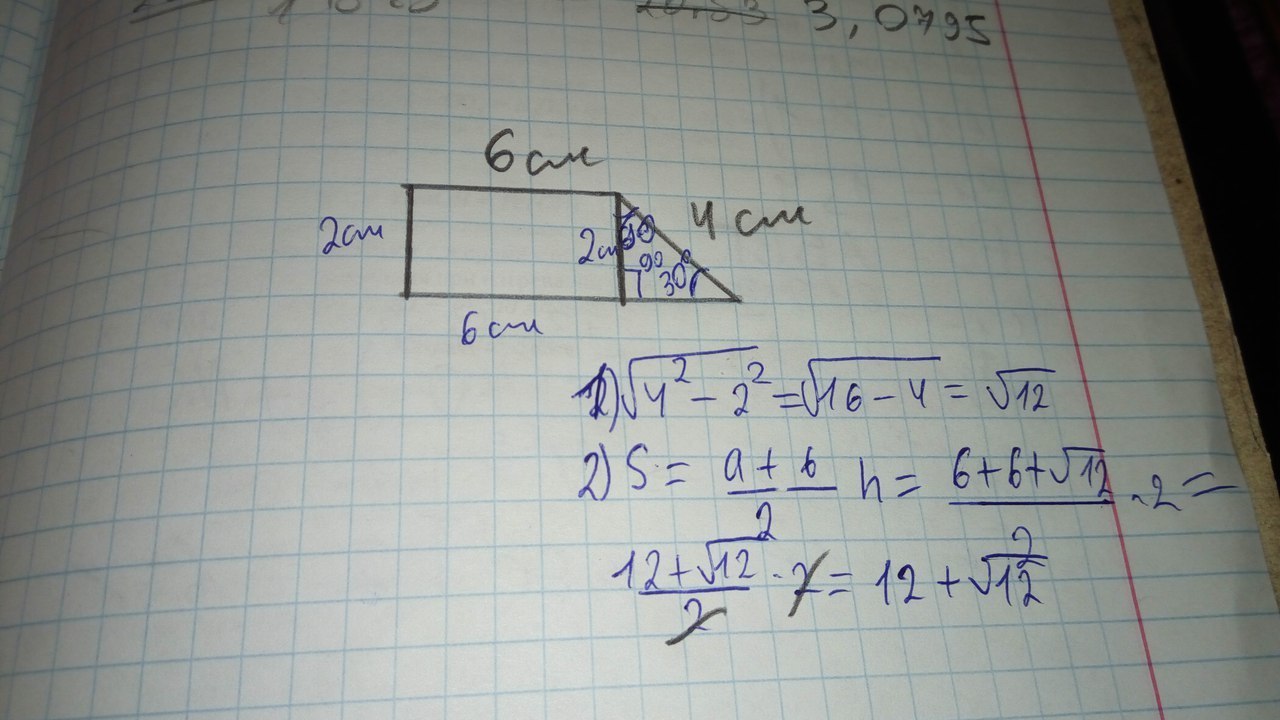 3,0795
6 см
2см
2см
60
4 см
90
30°
6 см
1)√4² - 2² = √16 - 4 = √12
2) S = a + b / 2 h = 6+6+√12 / 2 · 2 =
12+√12 / 2 · 2 = 12 + √12